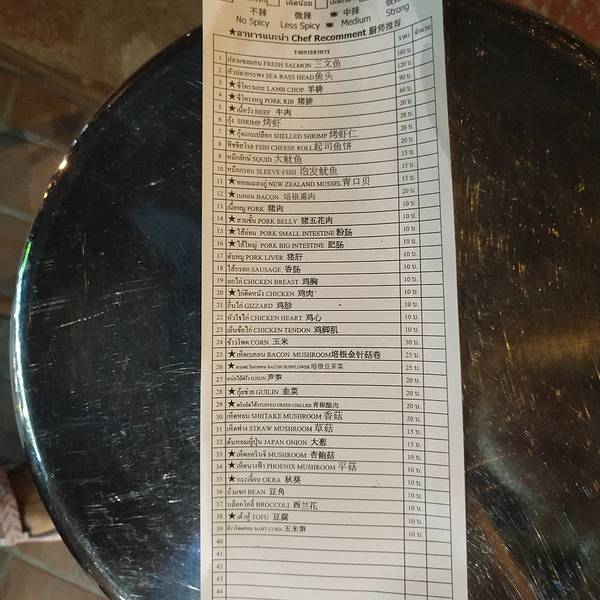 เผ็ดน้อย
不辣 微辣 中辣
No Spicy Less Spicy Medium Strong
★อาหารแนะนำ Chef Recomment 厨师推荐
รายการอาหาร ราคา จำนวน
1 ปลาแซลมอน FRESH SALMON 三文鱼 180 บ.
2 หัวปลากระพง SEA BASS HEAD 鱼头 120 บ.
3 ★ซี่โครงแกะ LAMB CHOP 羊排 90 บ.
4 ★ซี่โครงหมู PORK RIB 猪排 60 บ.
5 ★เนื้อวัว BEEF 牛肉 20 บ.
6 กุ้ง SHRIMP 烤虾 20 บ.
7 ★กุ้งแกะเปลือก SHELLED SHRIMP 烤虾仁 20 บ.
8 ฟิชชีสโรล FISH CHEESE ROLL 起司鱼饼 20 บ.
9 หมึกยักษ์ SQUID 大鱿鱼 15 บ.
10 หมึกกรอบ SLEEVE-FISH 泡发鱿鱼 15 บ.
11 ★หอยแมลงภู่ NEW ZEALAND MUSSEL 青口贝 15 บ.
12 ★เบคอน BACON 培根熏肉 20 บ.
13 เนื้อหมู PORK 猪肉 10 บ.
14 ★สามชั้น PORK BELLY 猪五花肉 10 บ.
15 ★ไส้อ่อน PORK SMALL INTESTINE 粉肠 10 บ.
16 ★ไส้ใหญ่ PORK BIG INTESTINE 肥肠 10 บ.
17 ตับหมู PORK LIVER 猪肝 10 บ.
18 ไส้กรอก SAUSAGE 香肠 10 บ.
19 อกไก่ CHICKEN BREAST 鸡胸 10 บ.
20 ★ไก่ติดหนัง CHICKEN 鸡肉 10 บ.
21 กึ๋นไก่ GIZZARD 鸡胗 10 บ.
22 หัวใจไก่ CHICKEN HEART 鸡心 10 บ.
23 เอ็นข้อไก่ CHICKEN TENDON 鸡脚肌 10 บ.
24 ข้าวโพด CORN 玉米 30 บ.
25 ★เห็ดเบคอน BACON MUSHROOM 培根金针菇卷 25 บ.
26 BACON SUNFLOWER 培根豆芽菜 25 บ.
27 หน่อไม้ฝรั่ง 芦笋 20 บ.
28 ★กุ้ยช่าย GUILIN 韭菜 20 บ.
29 ★พริกยัดไส้ STUFFED GREEN CHILLIES 青椒酿肉 20 บ.
30 เห็ดหอม SHIITAKE MUSHROOM 香菇 10 บ.
31 เห็ดฟาง STRAW MUSHROOM 草菇 15 บ.
32 ต้นหอมญี่ปุ่น JAPAN ONION 大葱 15 บ.
33 ★เห็ดออรินจิ MUSHROOM 杏鲍菇 10 บ.
34 ★เห็ดนางฟ้า PHOENIX MUSHROOM 平菇 10 บ.
35 ★กระเจี๊ยบ OKRA 秋葵 10 บ.
36 ถั่วแขก BEAN 豆角 10 บ.
37 บล็อกโคลี่ BROCCOLI 西兰花 10 บ.
38 ★เต้าหู้ TOFU 豆腐 10 บ.
39 ข้าวโพดอ่อน BABY CORN 玉米笋 10 บ.
40
41
42
43
44